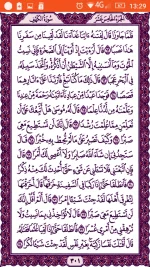 13:29
4G
الجزء الخامس عشر
سورة الكهف
فَلَمَّا جَاوَزَا قَالَ لِفَتَىٰهُ ءَاتِنَا غَدَآءَنَا لَقَدۡ لَقِينَا مِن سَفَرِنَا
هَٰذَا نَصَبٗا ٦٢ قَالَ أَرَءَيۡتَ إِذۡ أَوَيۡنَآ إِلَى ٱلصَّخۡرَةِ فَإِنِّي نَسِيتُ
ٱلۡحُوتَ وَمَآ أَنسَىٰنِيهُ إِلَّا ٱلشَّيۡطَٰنُ أَنۡ أَذۡكُرَهُۥۚ وَٱتَّخَذَ سَبِيلَهُۥ
فِي ٱلۡبَحۡرِ عَجَبٗا ٦٣ قَالَ ذَٰلِكَ مَا كُنَّا نَبۡغِۚ فَٱرۡتَدَّا عَلَىٰٓ ءَاثَارِهِمَا
قَصَصٗا ٦٤ فَوَجَدَا عَبۡدٗا مِّنۡ عِبَادِنَآ ءَاتَيۡنَٰهُ رَحۡمَةٗ مِّنۡ عِندِنَا
وَعَلَّمۡنَٰهُ مِن لَّدُنَّا عِلۡمٗا ٦٥ قَالَ لَهُۥ مُوسَىٰ هَلۡ أَتَّبِعُكَ عَلَىٰٓ أَن
تُعَلِّمَنِ مِمَّا عُلِّمۡتَ رُشۡدٗا ٦٦ قَالَ إِنَّكَ لَن تَسۡتَطِيعَ
مَعِيَ صَبۡرٗا ٦٧ وَكَيۡفَ تَصۡبِرُ عَلَىٰ مَا لَمۡ تُحِطۡ بِهِۦ خُبۡرٗا ٦٨ قَالَ
سَتَجِدُنِيٓ إِن شَآءَ ٱللَّهُ صَابِرٗا وَلَآ أَعۡصِي لَكَ أَمۡرٗا ٦٩ قَالَ
فَإِنِ ٱتَّبَعۡتَنِي فَلَا تَسۡـَٔلۡنِي عَن شَيۡءٍ حَتَّىٰٓ أُحۡدِثَ لَكَ مِنۡهُ ذِكۡرٗا ٧٠
فَٱنطَلَقَا حَتَّىٰٓ إِذَا رَكِبَا فِي ٱلسَّفِينَةِ خَرَقَهَاۖ قَالَ أَخَرَقۡتَهَا لِتُغۡرِقَ
أَهۡلَهَا لَقَدۡ جِئۡتَ شَيۡـًٔا إِمۡرٗا ٧١ قَالَ أَلَمۡ أَقُلۡ إِنَّكَ
لَن تَسۡتَطِيعَ مَعِيَ صَبۡرٗا ٧٢ قَالَ لَا تُؤَاخِذۡنِي بِمَا نَسِيتُ وَلَا
تُرۡهِقۡنِي مِنۡ أَمۡرِي عُسۡرٗا ٧٣ فَٱنطَلَقَا حَتَّىٰٓ إِذَا لَقِيَا غُلَٰمٗا فَقَتَلَهُۥ
قَالَ أَقَتَلۡتَ نَفۡسٗا زَكِيَّةَۢ بِغَيۡرِ نَفۡسٖ لَّقَدۡ جِئۡتَ شَيۡـٔٗا نُّكۡرٗا ٧٤
٣٠١